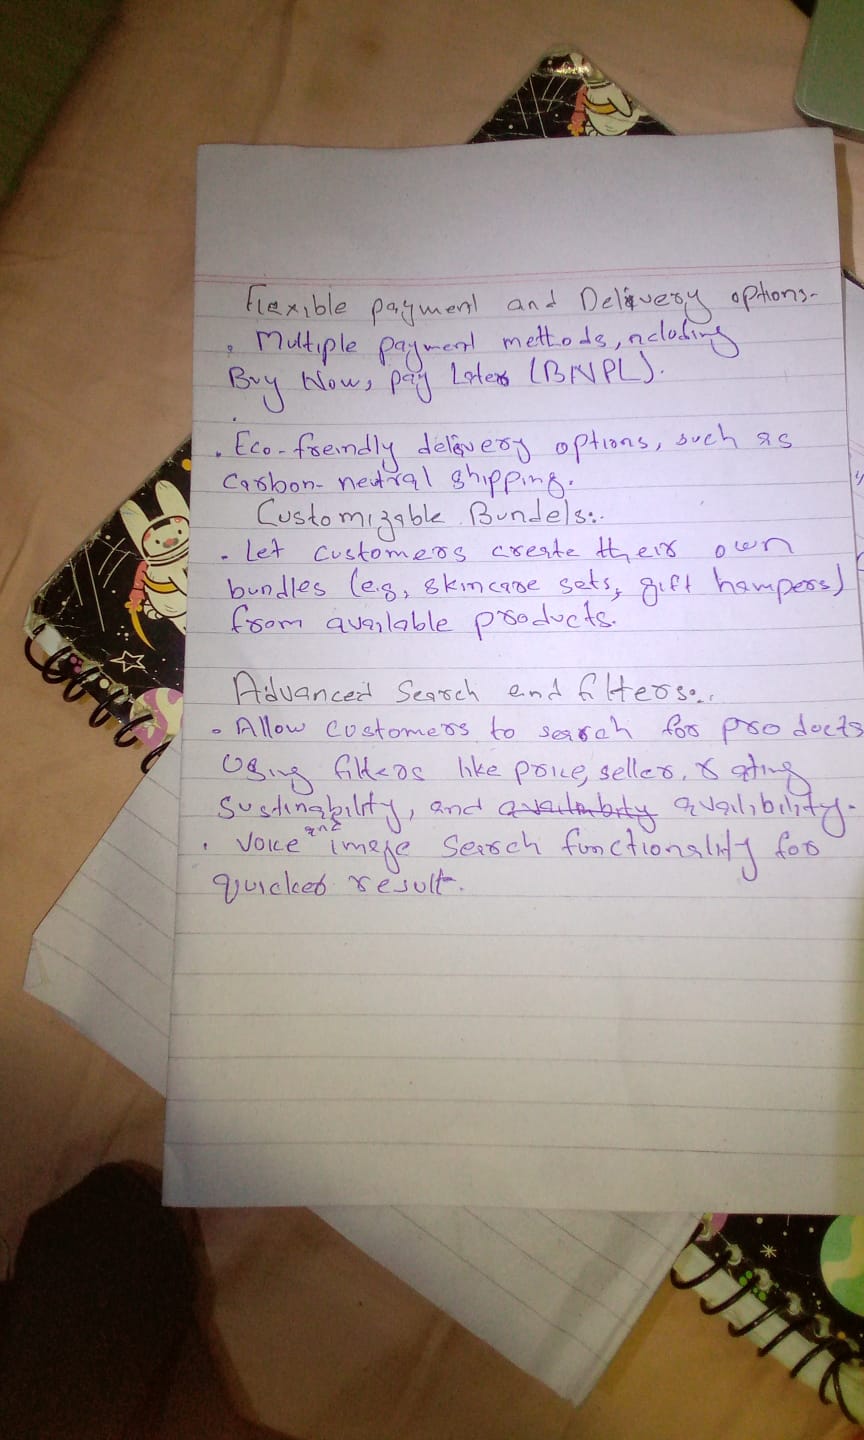 Flexible payment and Delivery options-
. Multiple payment methods, ncluding
Buy Now, Pay Later (BNPL).
. Eco-freindly delivery options, such as
Carbon-neutral shipping.
Customizable Bundels:.
. Let customers create their own
bundles (e.g, skincare sets, gift hampers)
from available products.
Advanced Search and filters:..
. Allow customers to search for products
Using filters like price, seller, rating
Sustinability, and availibility.
. Voice and image Search functionality for
quicker result.